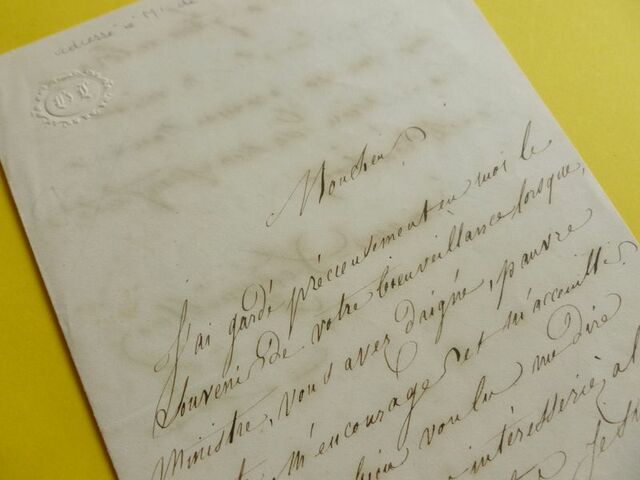 adressé à M. de
Monsieur,
J'ai gardé précieusement en moi le
souvenir de votre bienveillance lorsque,
Ministre, vous avez daigné, pauvre
m'encourager et m'accueillir.
bien voulu me dire
intéresserie à l